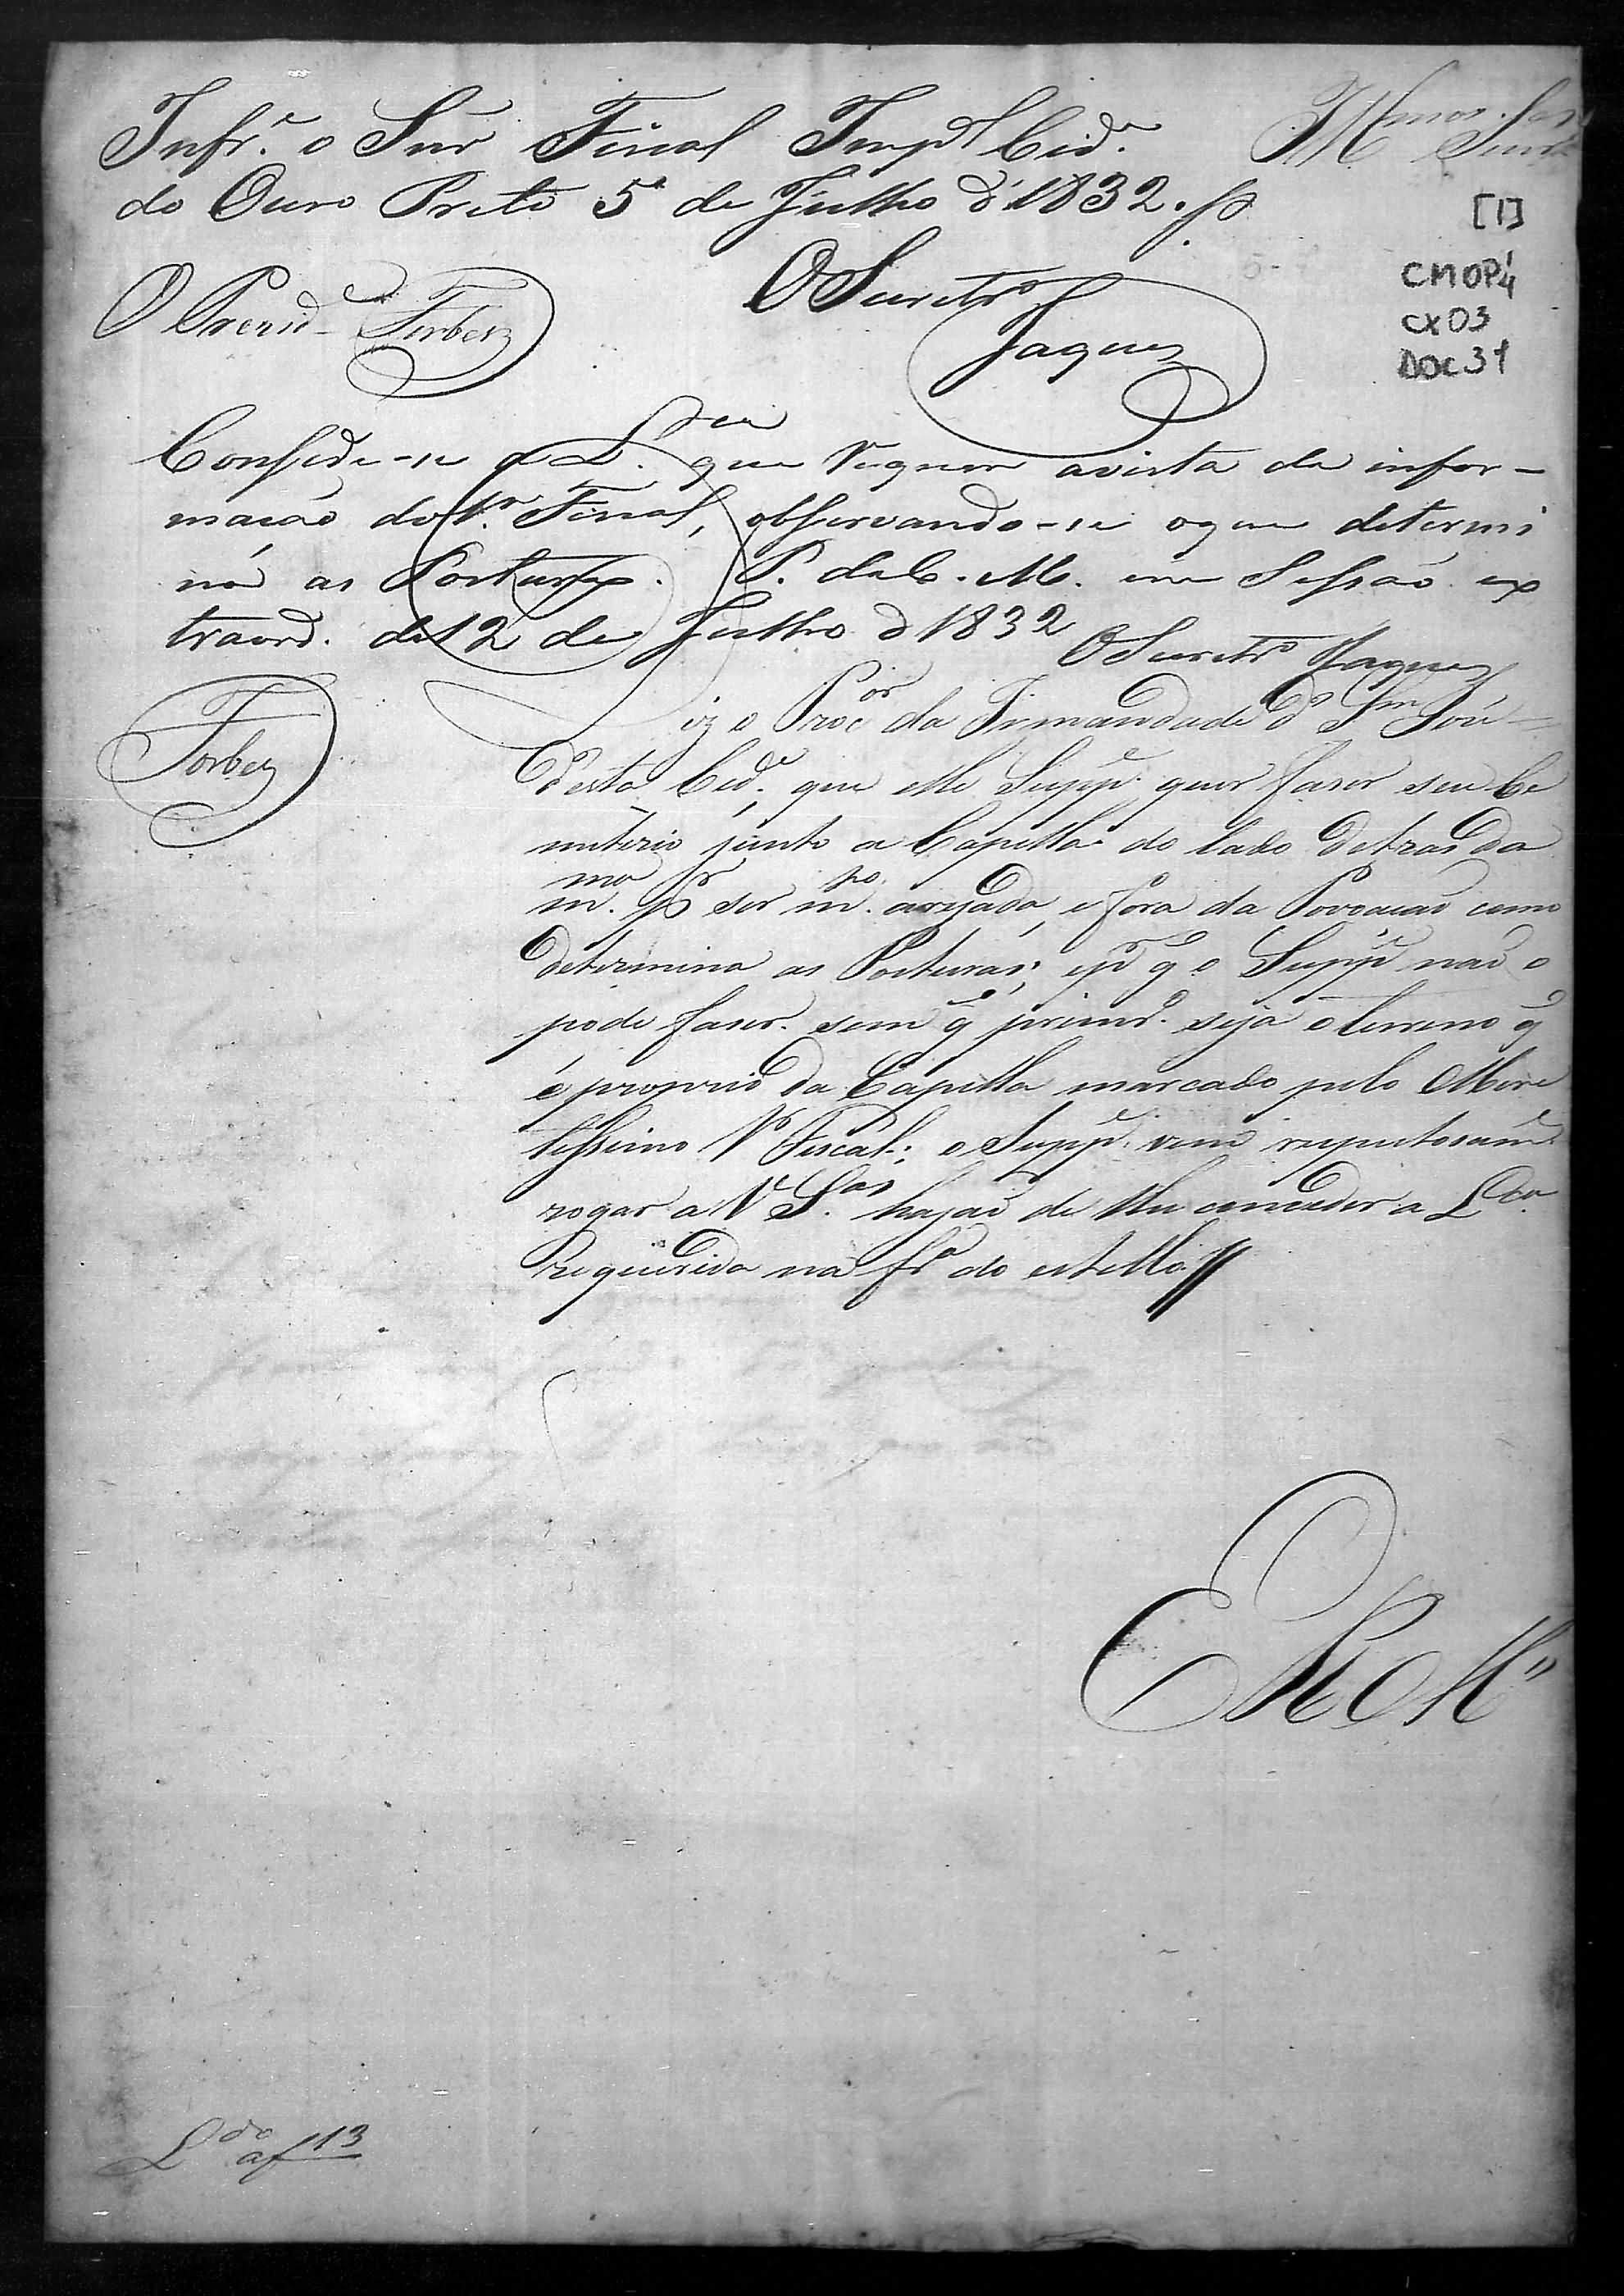 Infr.e o Snr Fiscal Imp.l Cid.e
do Ouro Preto 5 de Julho d' 1832.
Illmos. Snrs
[1]
CMOP¼
CX03
DOC31
O Prezid. Forbes
O Secretr.o
Jaques
Consede-se a L.ca que requer avista da infor-
mação do Sr. Fiscal, observando-se oque determi
nã as Posturas. P. da C. M. em Sessão ex
traord. de 12 de Julho d 1832
O Secretr.o Jaques
Forbes
Diz o Proc.or da Irmandade d S.m José
desta Cid.e que elle Supp.e quer faser seu Ce
miterio junto a Capella do lado detras da
m.ma p.r ser m.to arejada, e fora da Povoação como
determina as Posturas; e p.r q o Supp.e não o
pode faser sem q prim.o seja o terreno q
é proprio da Capella marcado pelo Mere
tissimo Fiscal; o Supp.e vem respeitosam.e
rogar a V S.as hajão de lhe conceder a L.ca
requerida na fr.a do estillo
E R M.ce
L.do a f 13